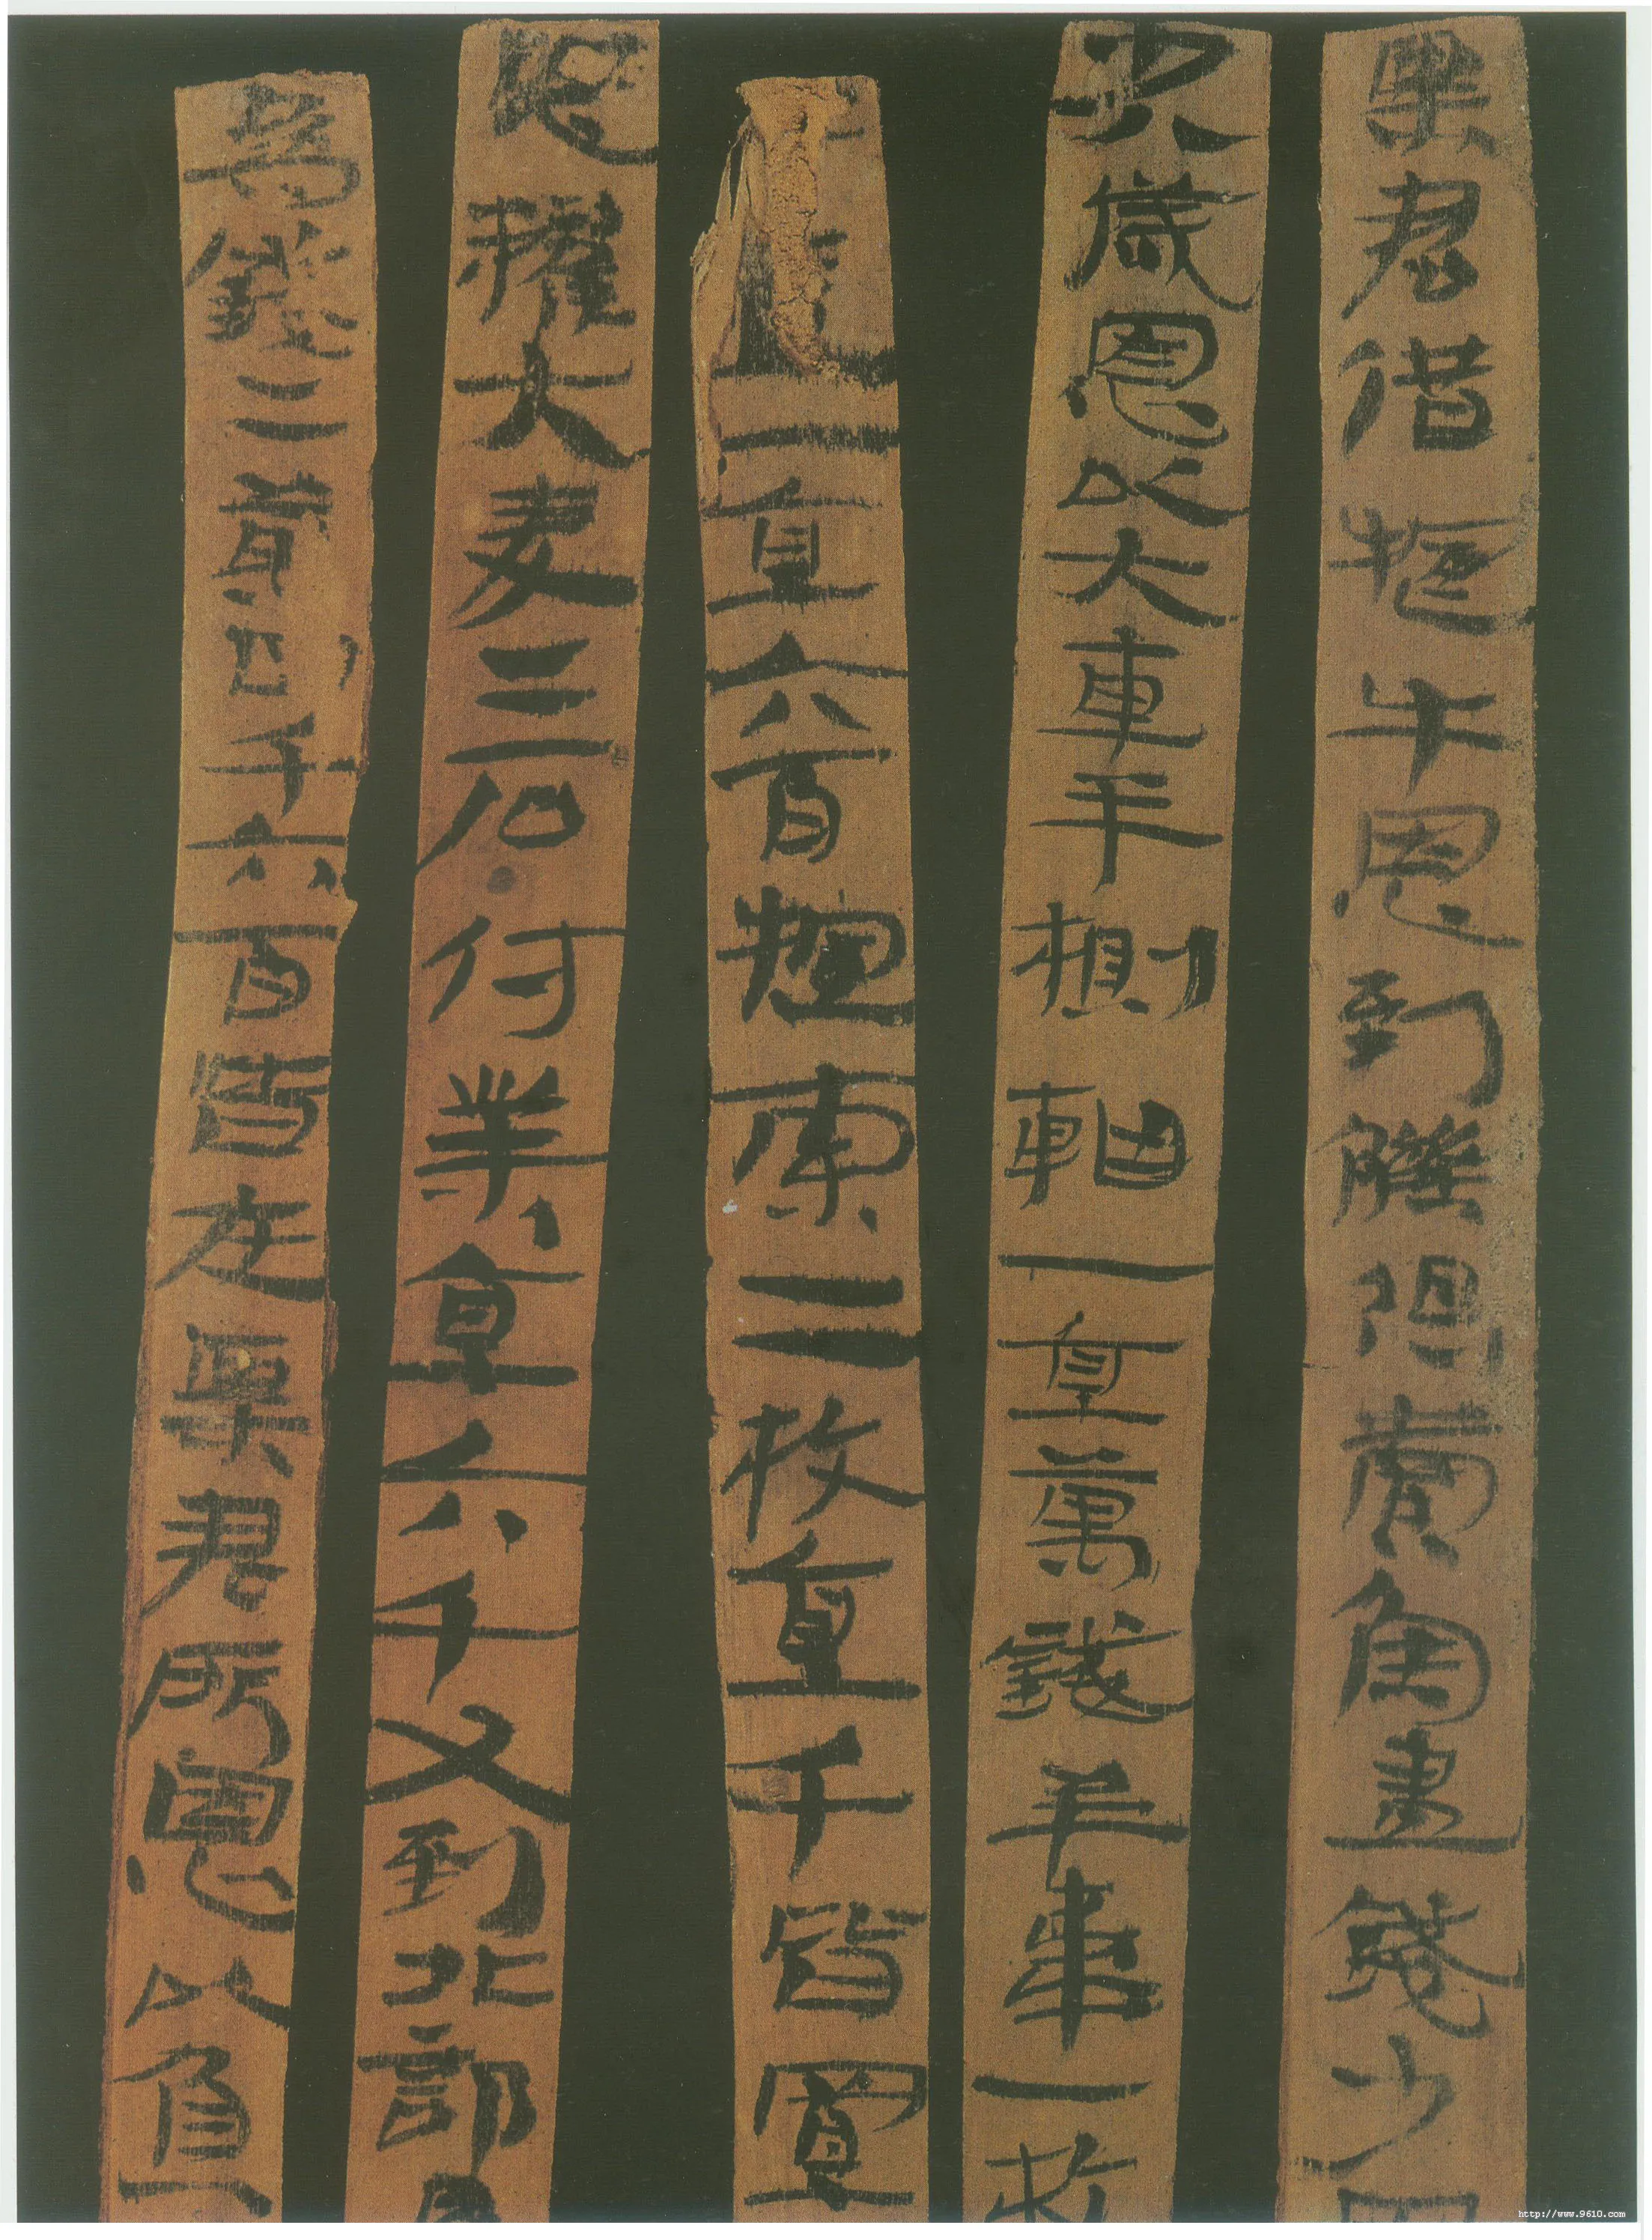 粟君借牛恩到觻得賣魚盡錢少因
少八歲恩以大車半軸一直萬錢羊韋一枚
一直六百索二枚直千皆置
恩糴大麥二石付業直六千又到北部為
為錢二萬四千六百皆在粟君所恩以負
http://www.9610.com